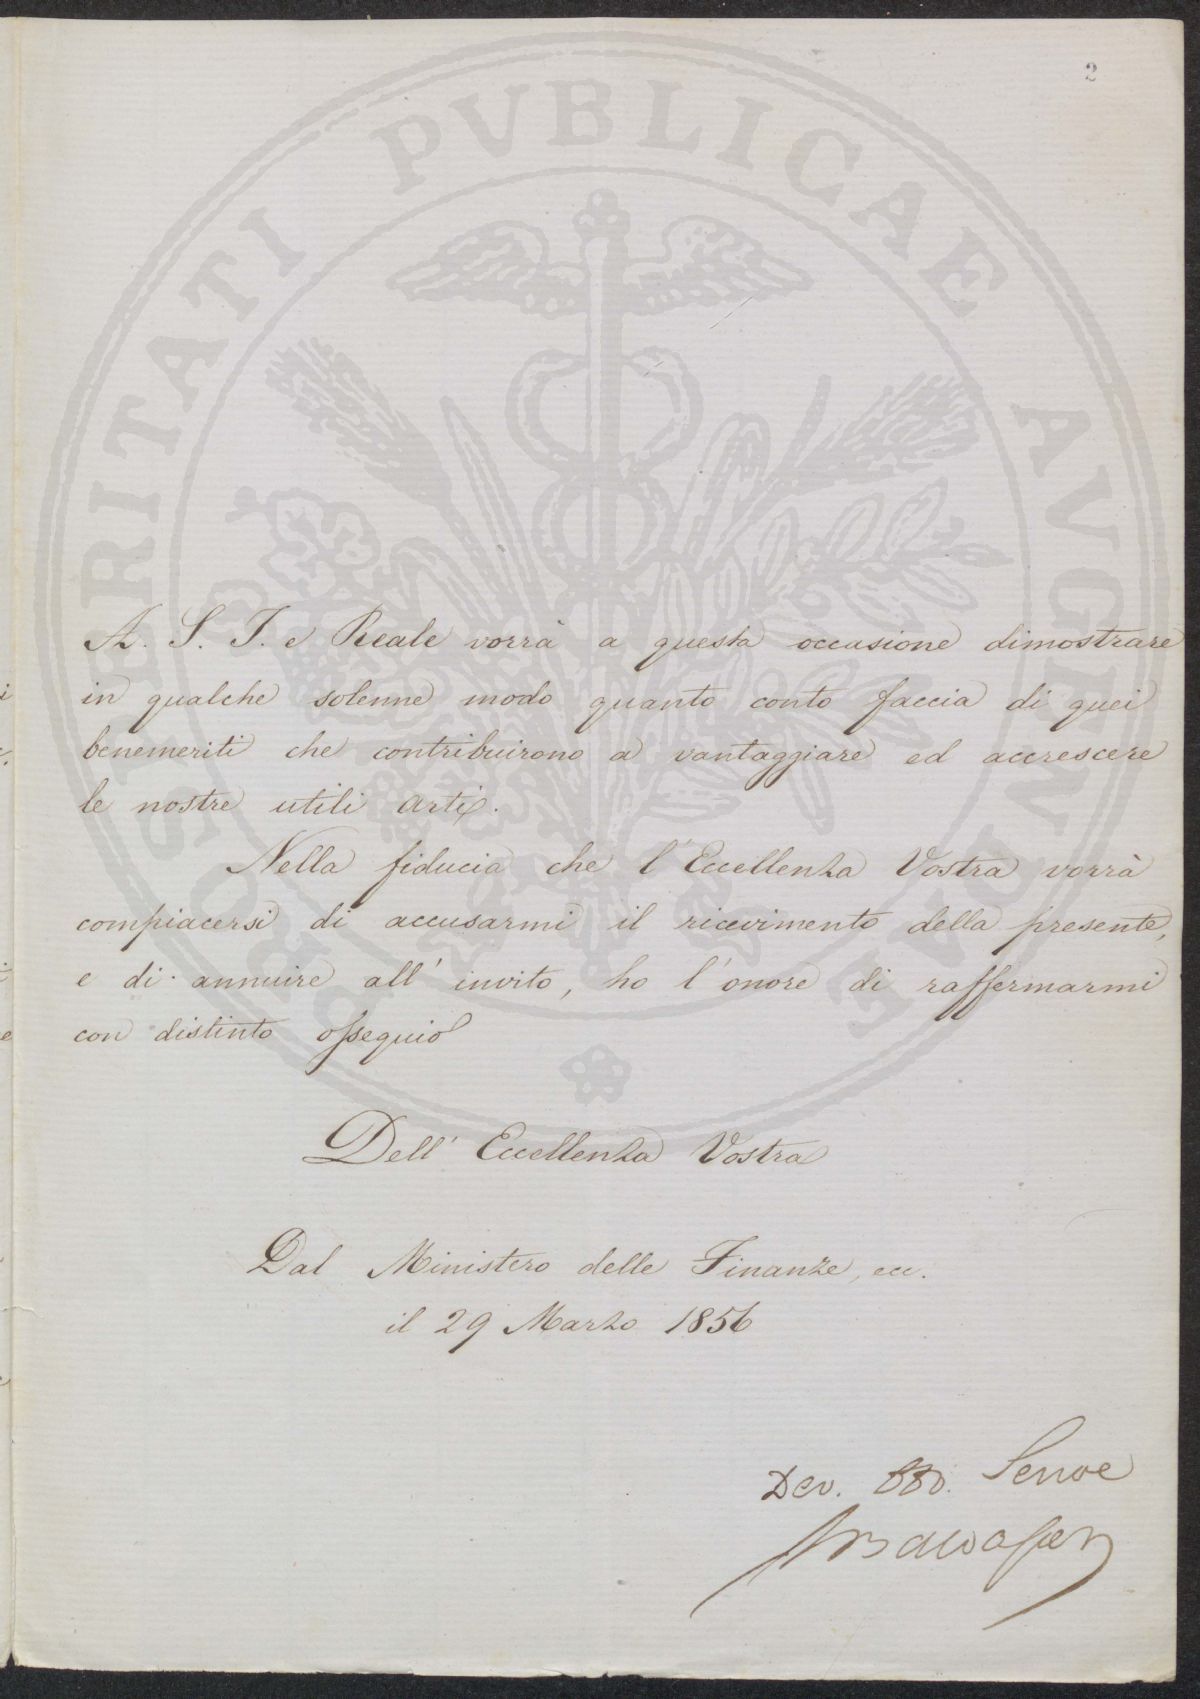 2
A. S. I. e Reale vorrà a questa occasione dimostrare
in qualche solenne modo quanto conto faccia di quei
benemeriti che contribuirono a vantaggiare ed accrescere
le nostre utili arti.
Nella fiducia che l'Eccellenza Vostra vorrà
compiacersi di accusarmi il ricevimento della presente,
e di annuire all'invito, ho l'onore di raffermarmi
con distinto ossequio
Dell'Eccellenza Vostra
Dal Ministero delle Finanze, ecc.
il 29 Marzo 1856
Dev. Obb. Servo
PROSPERITATI PVBLICAE AVGENDAE